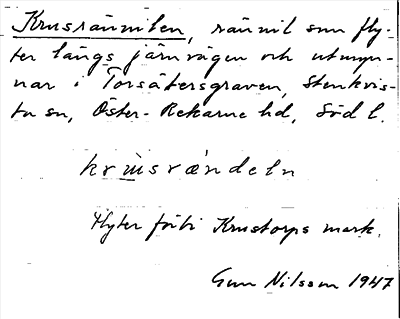 Krusrännilen, rännil som fly-
ter längs järnvägen och utmyn-
nar i Torsätersgraven, Stenkvis-
ta sn, Öster-Rekarne hd, Södl.
krusrändeln
Flyter förbi Krustorps mark.
Gun Nilsson 1947